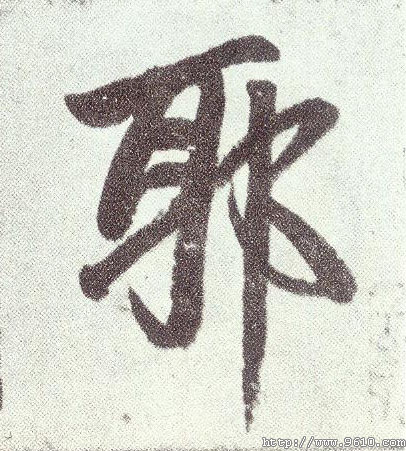 耶
http://www.9610.com